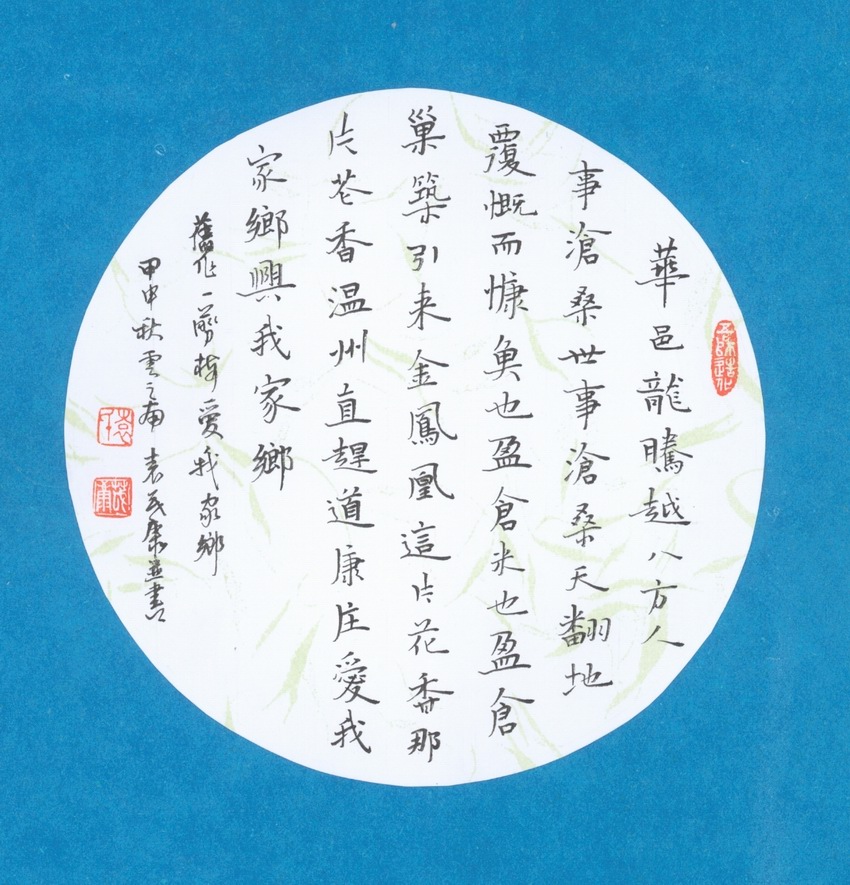 華邑龍騰越八方人
事滄桑世事滄桑天翻地
覆慨而慷魚也盈倉米也盈倉
巢築引来金鳳凰這片花香那
片花香温州直趕道康庄愛我
家鄉興我家鄉
舊作一剪梅愛我家鄉
甲申秋雲之南袁康並書